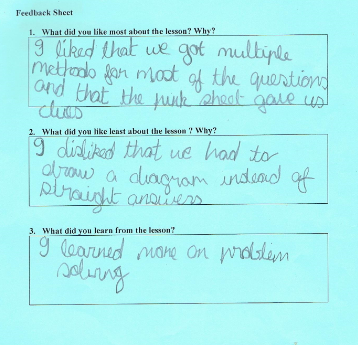 Feedback Sheet
1. What did you like most about the lesson? Why?
I liked that we got multiple
methods for most of the questions
and that the pink sheet gave us
clues
2. What did you like least about the lesson ? Why?
I disliked that we had to
draw a diagram instead of
straight answers
3. What did you learn from the lesson?
I learned more on problem
solving